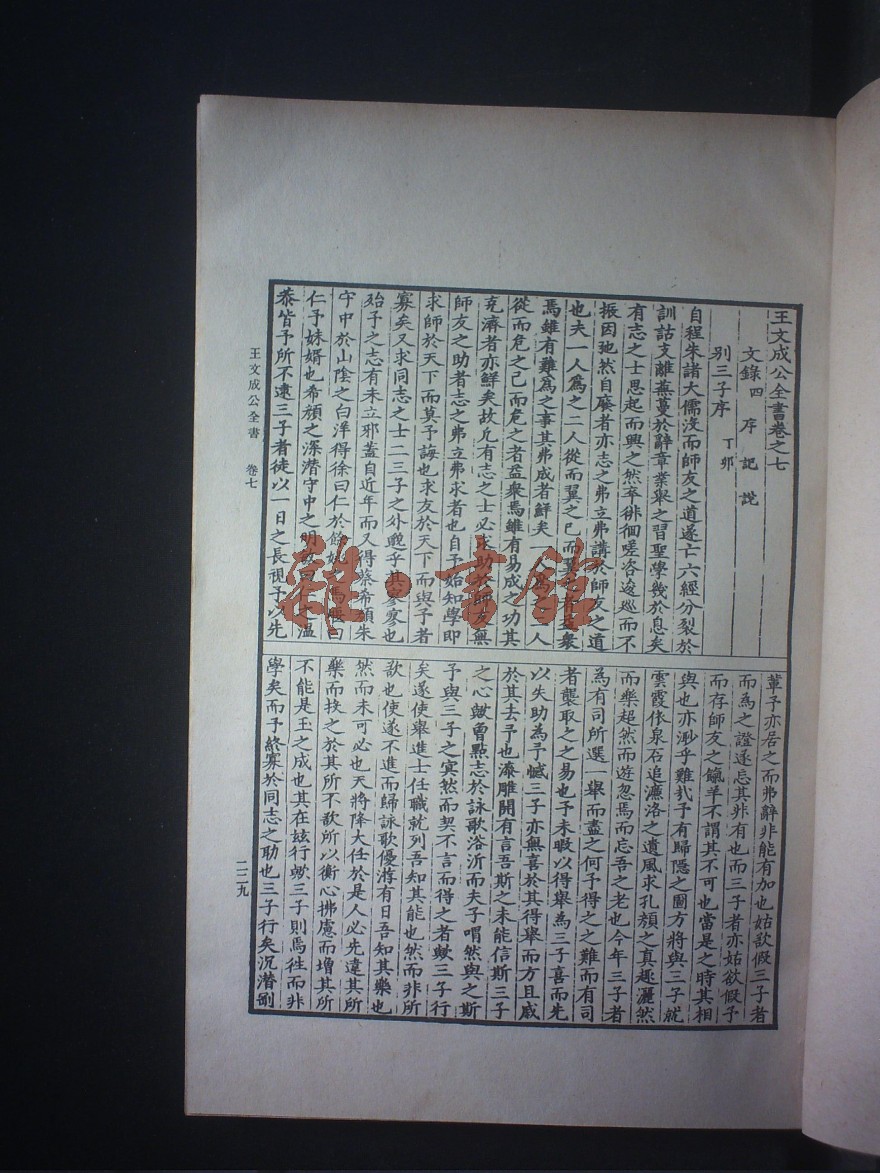 王文成公全書卷之七
文錄四 序 記 說
別三子序 丁卯
自程朱諸大儒沒而師友之道遂亡六經分裂於
訓詁支離蕪蔓於辭章業舉之習聖學幾於息矣
有志之士思起而興之然卒徘徊嗟咨逡巡而不
振因弛然自廢者亦志之弗立弗講於師友之道
也夫一人為之二人從而翼之已而翼之者益衆
焉雖有難為之事其弗成者鮮矣一人為之二人
從而危之已而危之者益衆焉雖有易成之功其
克濟者亦鮮矣故凡有志之士必求助於師友無
師友之助者志之弗立弗求者也自予始知學即
求師於天下而莫予誨也求友於天下而與予者
寡矣又求同志之士二三子之外邈乎其寥寥也
殆予之志有未立邪蓋自近年而又得蔡希顏朱
守中於山陰之白洋得徐曰仁於餘姚之馬堰曰
仁予妹婿也希顏之深潛守中之明敏曰仁之溫
恭皆予所不逮三子者徒以一日之長視予以先
輩予亦居之而弗辭非能有加也姑欲假三子者
而為之證遂忘其非有也而三子者亦姑欲假予
而存師友之餼羊不謂其不可也當是之時其相
與也亦渺乎難哉予有歸隱之圖方將與三子就
雲霞依泉石追濂洛之遺風求孔顏之真趣灑然
而樂超然而遊忽焉而忘吾之老也今年三子者
為有司所選一舉而盡之何予得之之難而有司
者襲取之之易也予未暇以得舉為三子喜而先
以失助為予憾三子亦無喜於其得舉而方且慼
於其去予也漆雕開有言吾斯之未能信斯三子
之心歟曾點志於詠歌浴沂而夫子喟然與之斯
予與三子之冥然而契不言而得之者歟三子行
矣遂使舉進士任職就列吾知其能也然而非所
欲也使遂不進而歸詠歌優游有日吾知其樂也
然而未可必也天將降大任於是人必先違其所
樂而投之於其所不欲所以衡心拂慮而增其所
不能是玉之成也其在茲行歟三子則焉往而非
學矣而予終寡於同志之助也三子行矣沉潛剛
王文成公全書 卷七
二二九
雜·書館